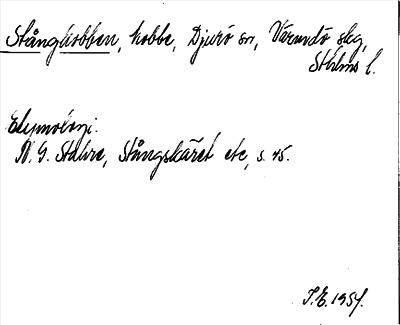 Stångkobben, kobbe, Djurö sn, Värmdö skg,
Sthlms l.
Etymologi:
N. G. Stahre, Stångskäret etc, s. 45.
I.E. 1954.